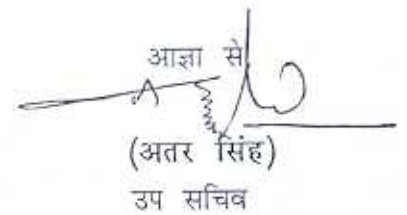 आज्ञा से
(अतर सिंह)
उप सचिव